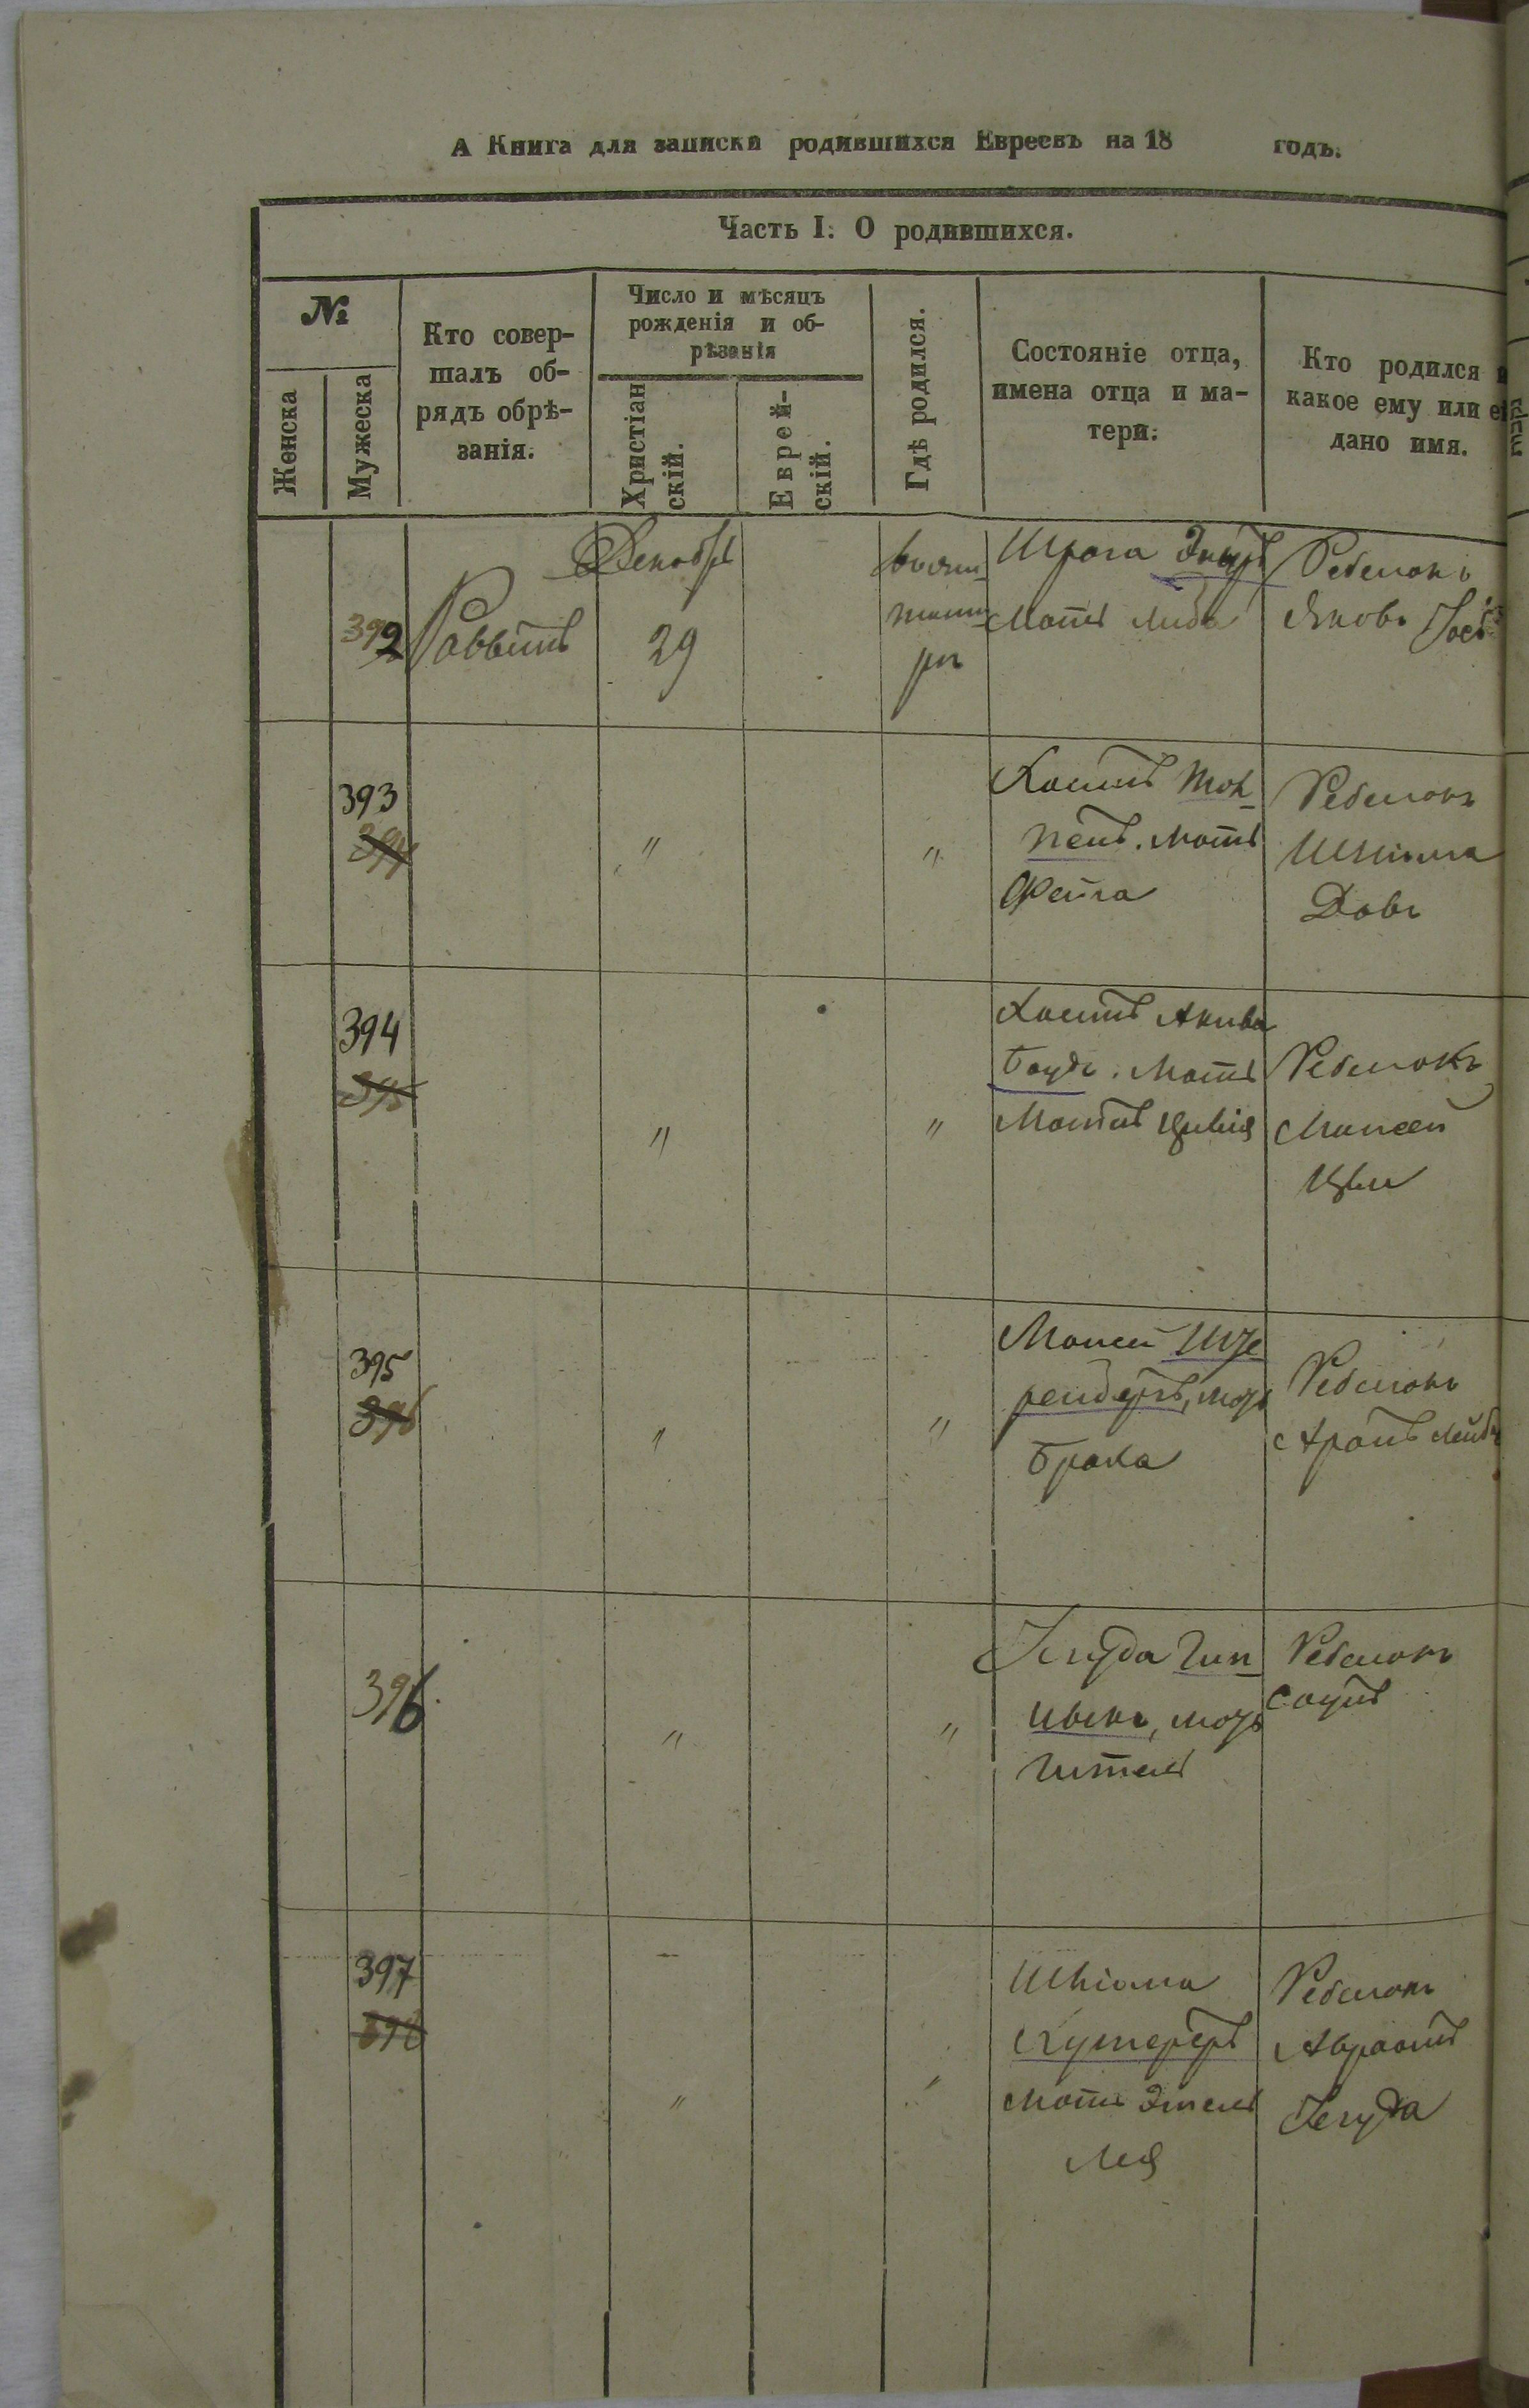 А Книга для записки родившихся Евреевъ на 18 годъ.
Часть I. О родившихся.
№
Женска
Мужеска
Кто совер-
шалъ об-
рядъ обрѣ-
занія.
Число и мѣсяцъ
рожденія и об-
рѣзанія
Христіан
скій.
Еврей-
скій.
Гдѣ родился.
Состояніе отца,
имена отца и ма-
тери.
Кто родился и
какое ему или ей
дано имя.
392
Раввинъ
Декабрь
29
Шрага
Мать Либа
Ребенокъ
Яковъ
393
"
"
Хаимъ
Мать
Фейга
Ребенокъ
Шлiома
Довъ
394
"
"
Хаимъ Акива
Баудъ. Мать
Матля Цивія
Ребенокъ
Моисей
Цви
395
"
"
Моисей
Брaха
Ребенокъ
Аронъ Лейбъ
396
"
"
Іегуда Гин
Гитель
Ребенокъ
Саулъ
397
"
"
Шліома
Мать Этель
Лея
Ребенокъ
Авраамъ
Іегуда